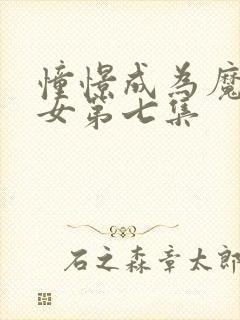 憧憬成為魔
女第七集
石之森章太郎